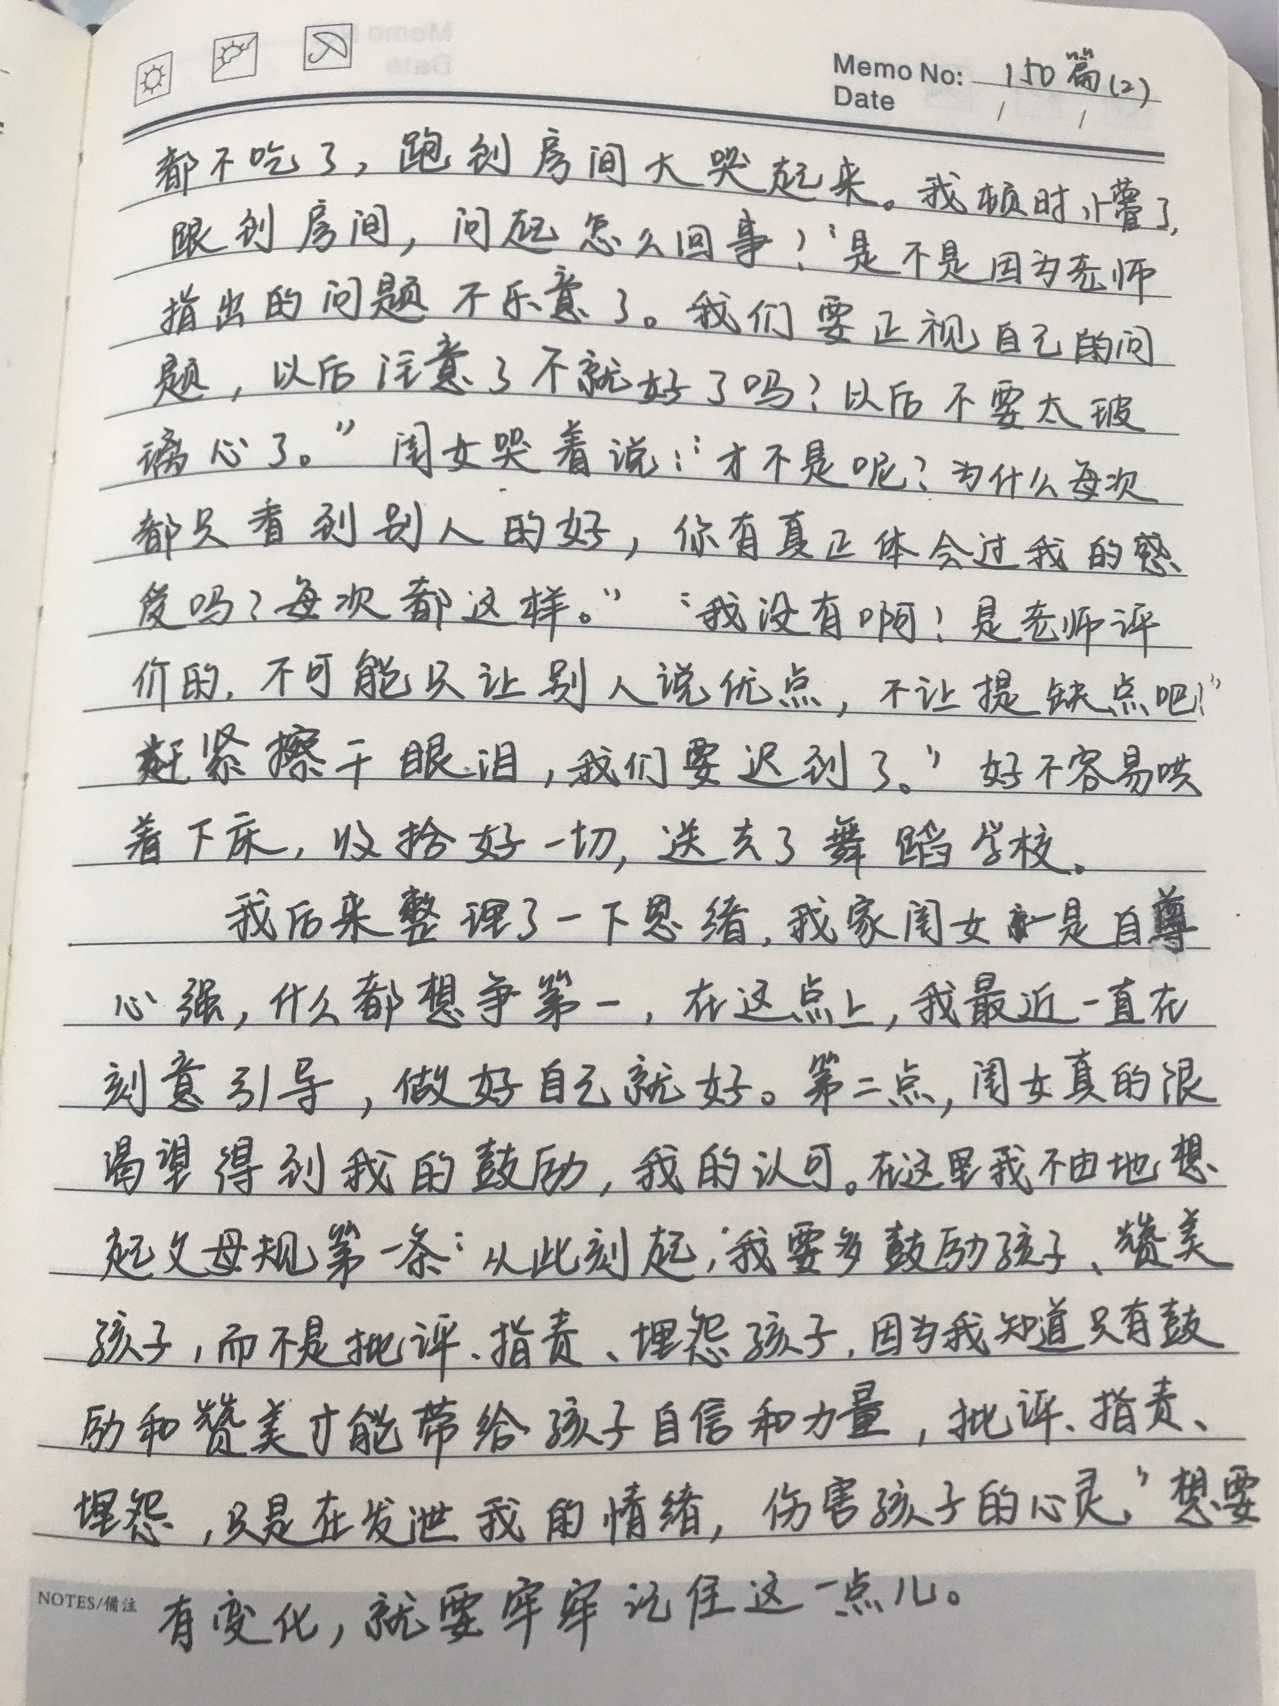 Memo No: 150篇(2)
Date / /
都不吃了，跑到房间大哭起来。我顿时懵了，
跟到房间，问起怎么回事？“是不是因为老师
指出的问题不乐意了。我们要正视自己的问
题，以后注意了不就好了吗？以后不要太玻
璃心了。”闺女哭着说：“才不是呢？为什么每次
都只看到别人的好，你有真正体会过我的感
受吗？每次都这样。”“我没有啊！是老师评
价的，不可能只让别人说优点，不让提缺点吧！”
赶紧擦干眼泪，我们要迟到了。”好不容易哄
着下床，收拾好一切，送去了舞蹈学校。
我后来整理了一下思绪，我家闺女一是自尊
心强，什么都想争第一，在这点上，我最近一直在
刻意引导，做好自己就好。第二点，闺女真的很
渴望得到我的鼓励，我的认可。在这里我不由地想
起父母规第一条：从此刻起，“我要多鼓励孩子、赞美
孩子，而不是批评、指责、埋怨孩子，因为我知道只有鼓
励和赞美才能带给孩子自信和力量，批评、指责、
埋怨，只是在发泄我的情绪，伤害孩子的心灵，”想要
NOTES/備注 有变化，就要牢牢记住这一点儿。